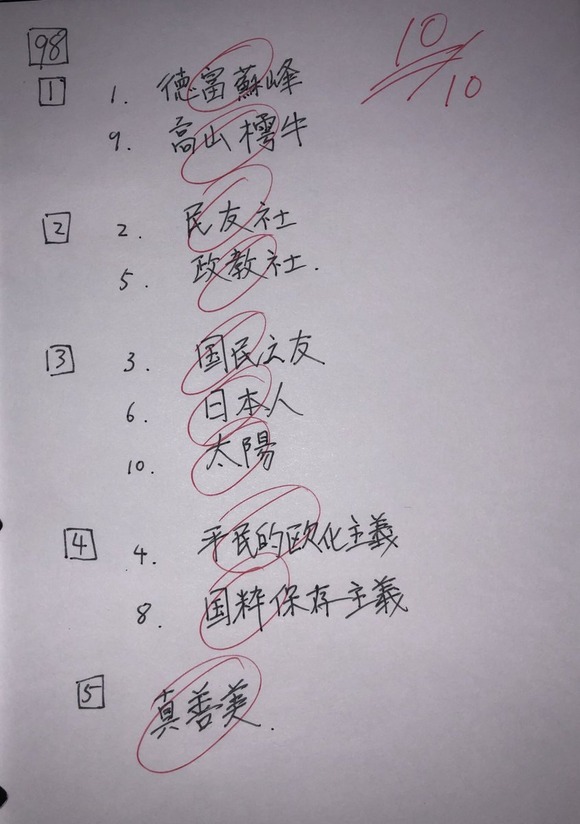 98
10/10
1 1. 徳富蘇峰
9. 高山樗牛
2 2. 民友社
5. 政教社.
3 3. 国民之友
6. 日本人
10. 太陽
4 4. 平民的欧化主義
8. 国粋保存主義
5 真善美.